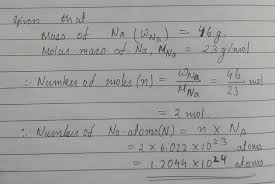 Given that
Mass of Na (W_Na) = 46 g.
Molar mass of Na, M_Na = 23 g/mol
∴ Number of moles (n) = W_Na / M_Na = 46 / 23 mol
= 2 mol.
∴ Number of Na-atoms (N) = n × N_A
= 2 × 6.022 × 10²³ atoms
= 1.2044 × 10²⁴ atoms